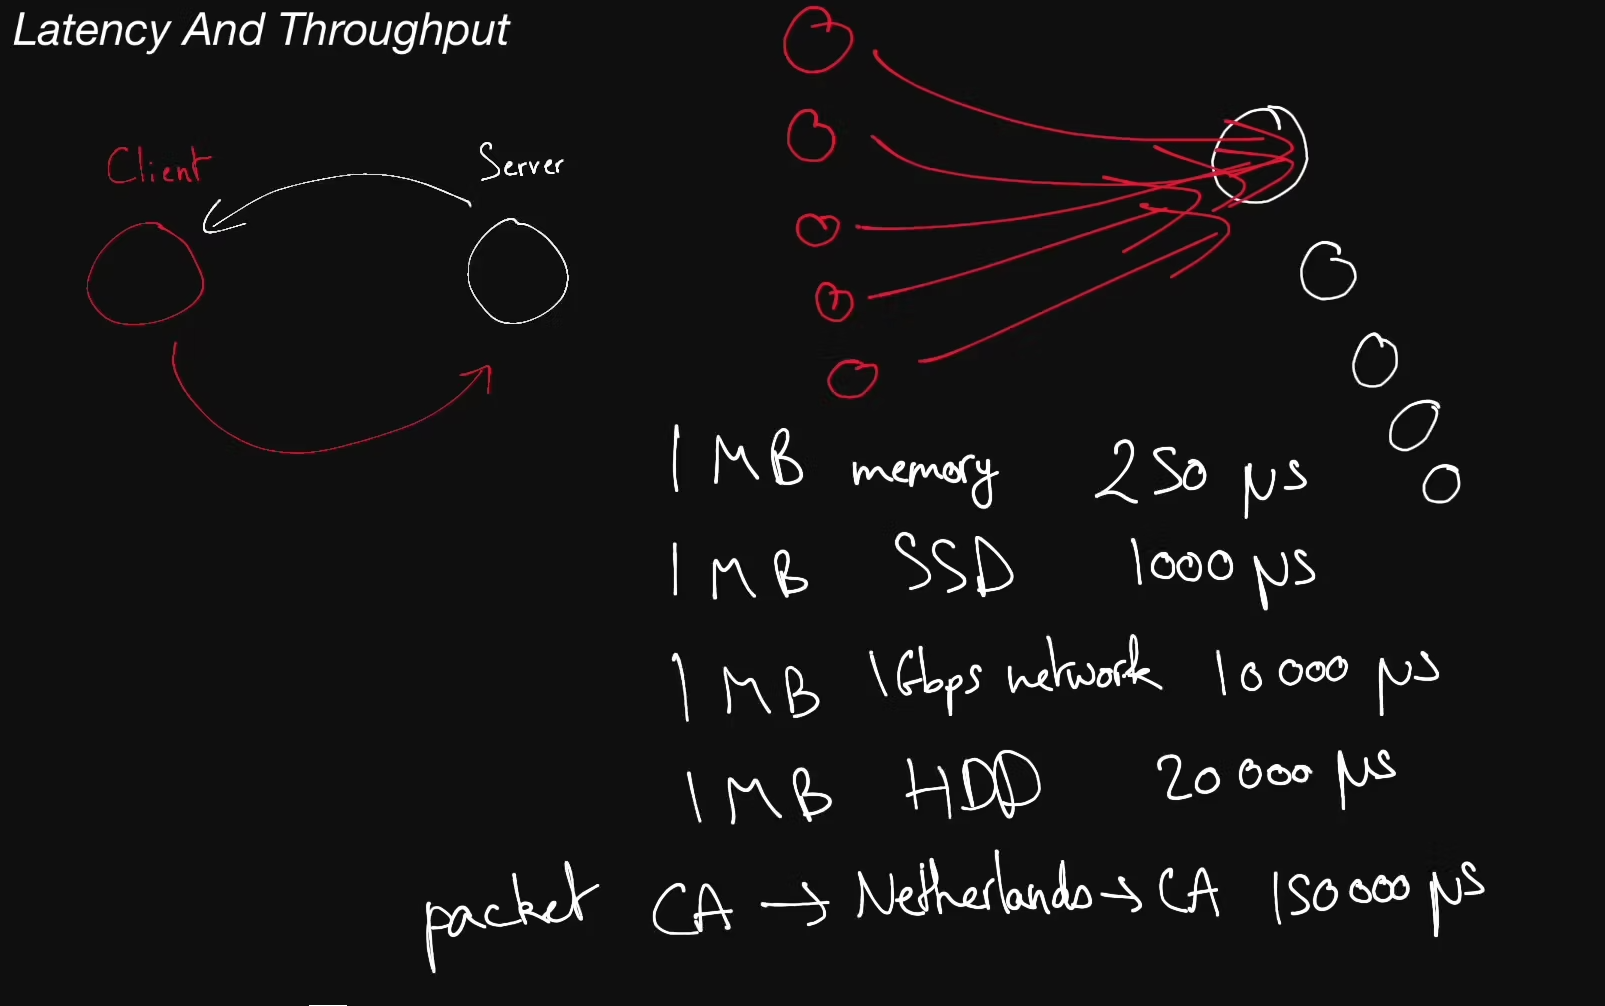 Latency And Throughput
Client
Server
1 MB memory 250 µs
1 MB SSD 1000 µs
1 MB 1Gbps network 10000 µs
1 MB HDD 20000 µs
packet CA → Netherlands → CA 150000 µs